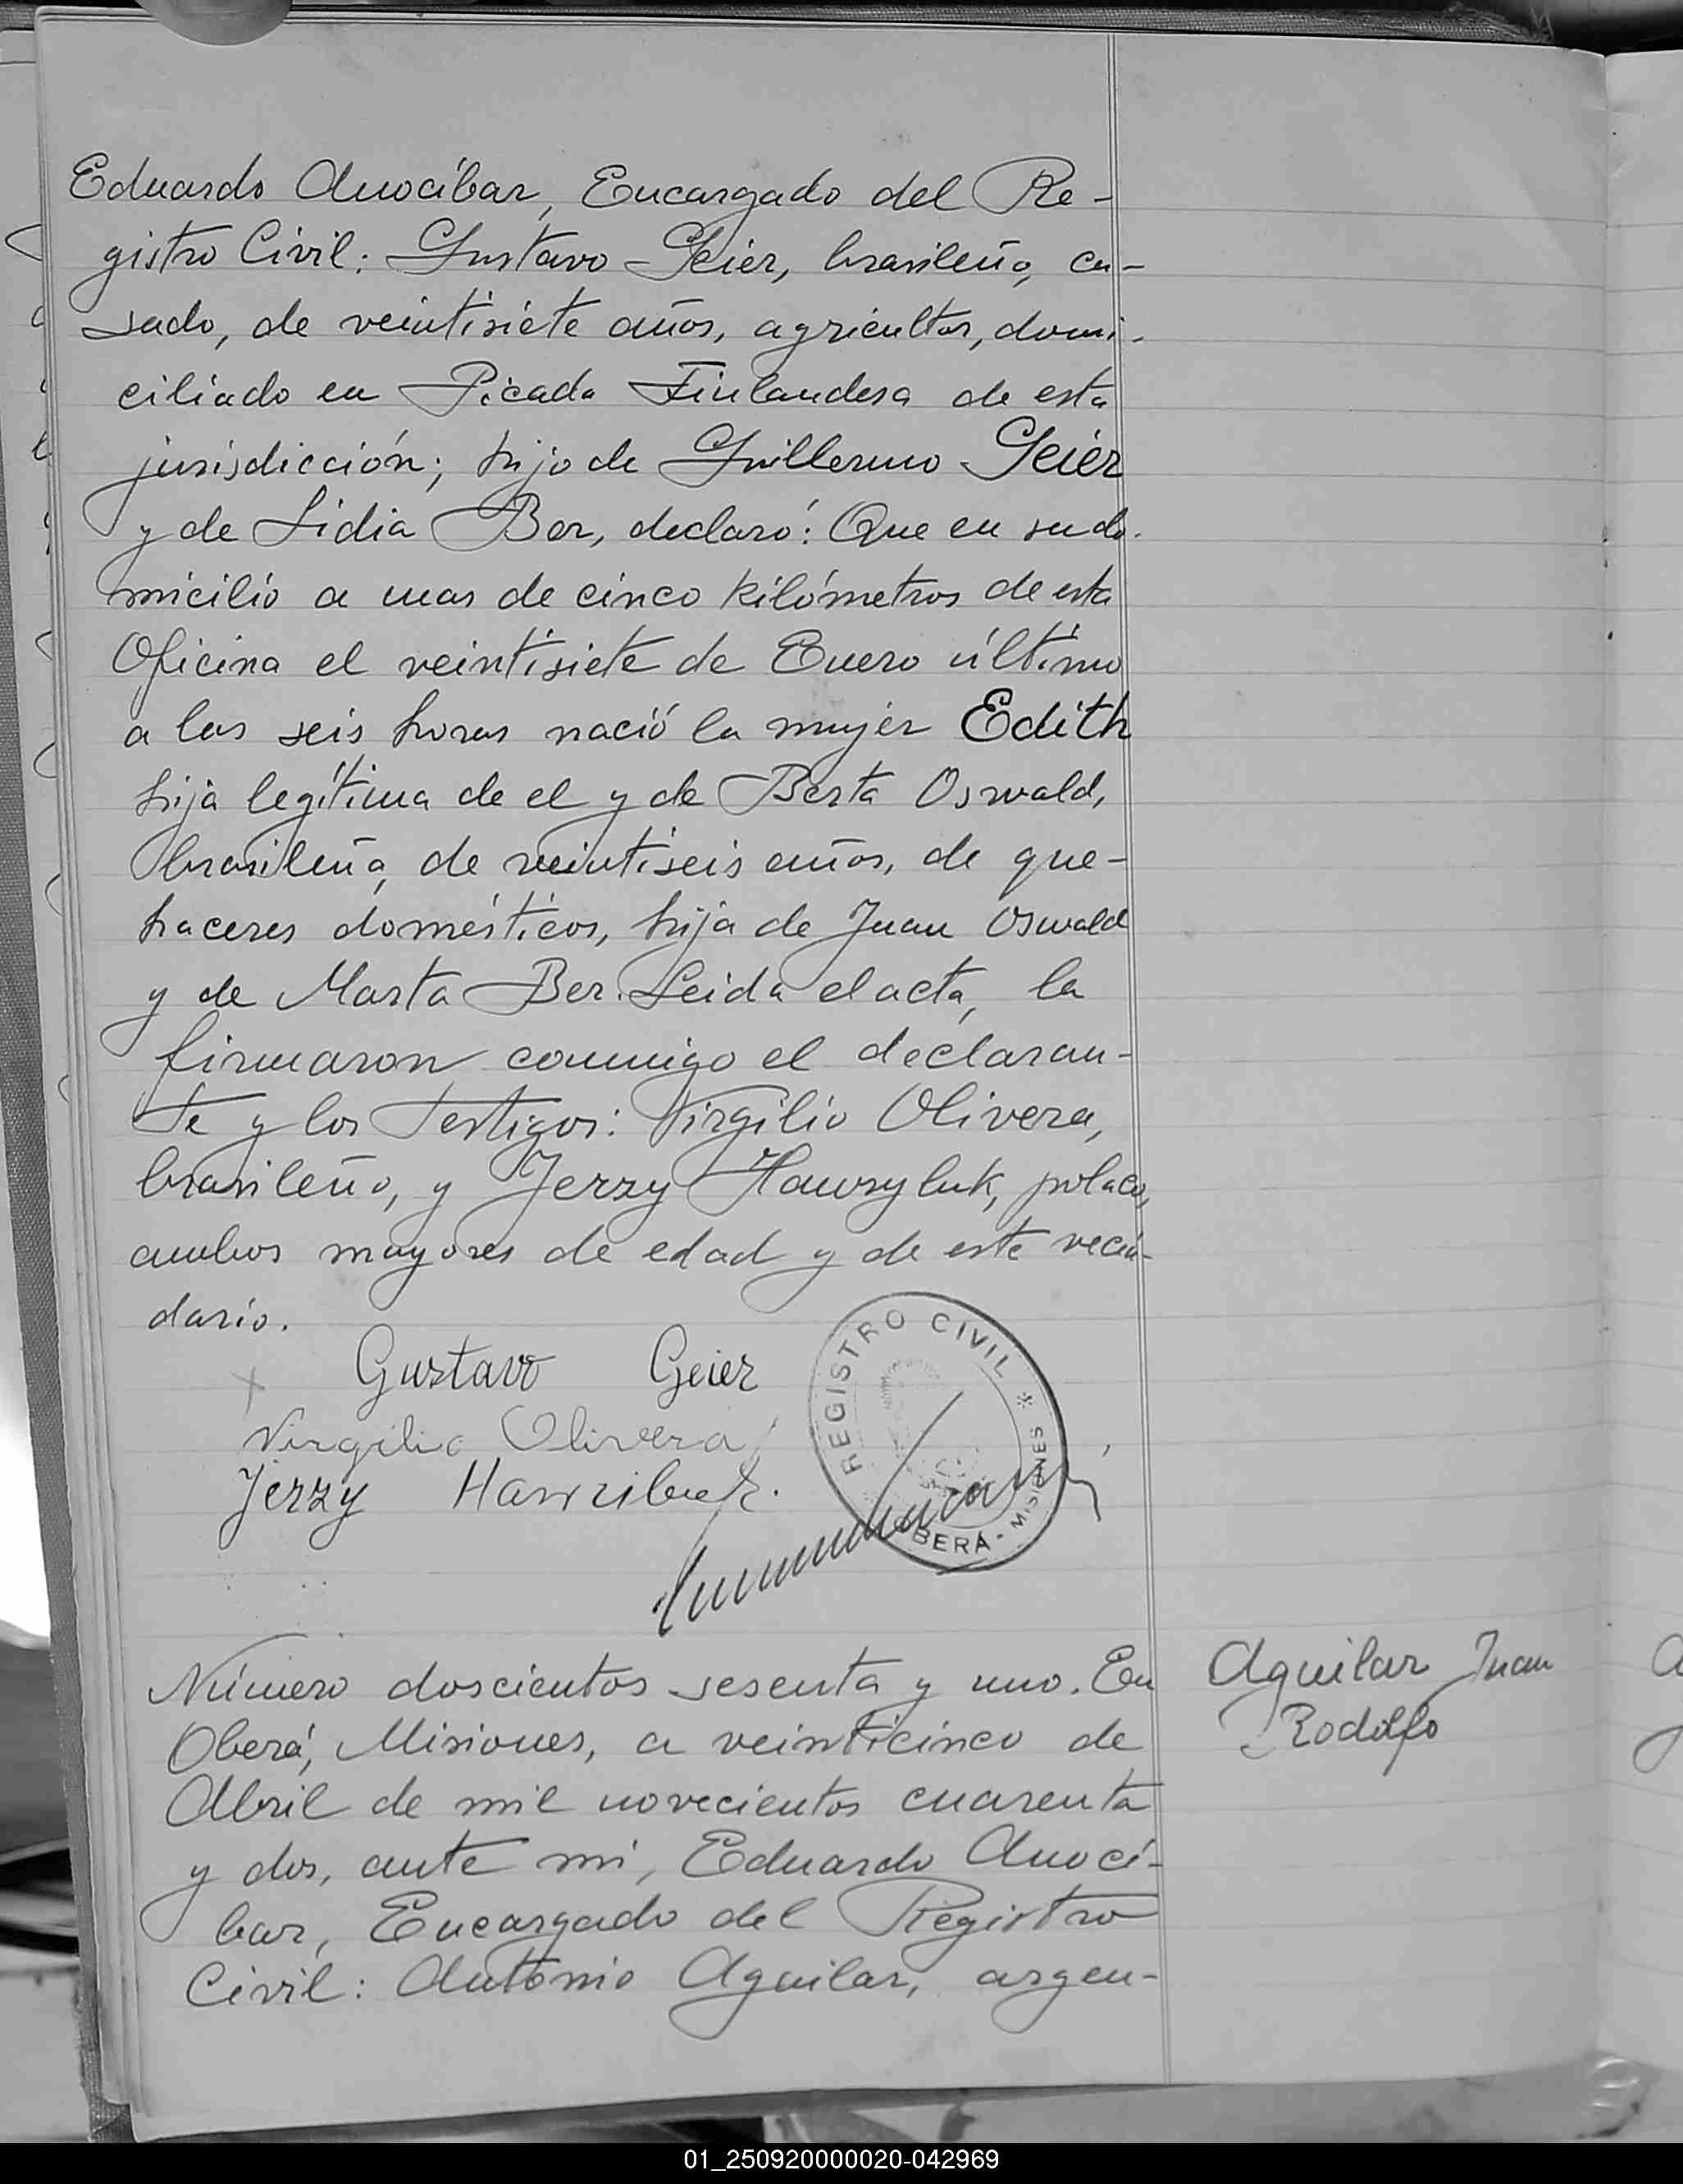 Eduardo Anocíbar, Encargado del Re-
gistro Civil: Gustavo Geier, brasileño, ca-
sado, de veintisiete años, agricultor, domi-
ciliado en Picada Finlandesa de esta
jurisdicción; hijo de Guillermo Geier
y de Lidia Ber, declaró: Que en su do-
micilio a mas de cinco kilómetros de esta
Oficina el veintisiete de Enero último
a las seis horas nació la mujer Edith
hija legítima de el y de Berta Oswald,
brasileña, de veintiseis años, de que-
haceres domésticos, hija de Juan Oswald
y de Marta Ber. Leida el acta, la
firmaron conmigo el declaran-
te y los testigos: Virgilio Olivera,
brasileño, y Jerzy Hawryluk, polaco,
ambos mayores de edad y de este vecin-
dario.
Gustavo Geier
Virgilio Olivera
Jerzy
REGISTRO CIVIL * OBERÁ - MISIONES
Número doscientos sesenta y uno. En
Oberá, Misiones, a veinticinco de
Abril de mil novecientos cuarenta
y dos, ante mi, Eduardo Anocí-
bar, Encargado del Registro
Civil: Antonio Aguilar, argen-
Aguilar Juan
Rodolfo
01_250920000020-042969